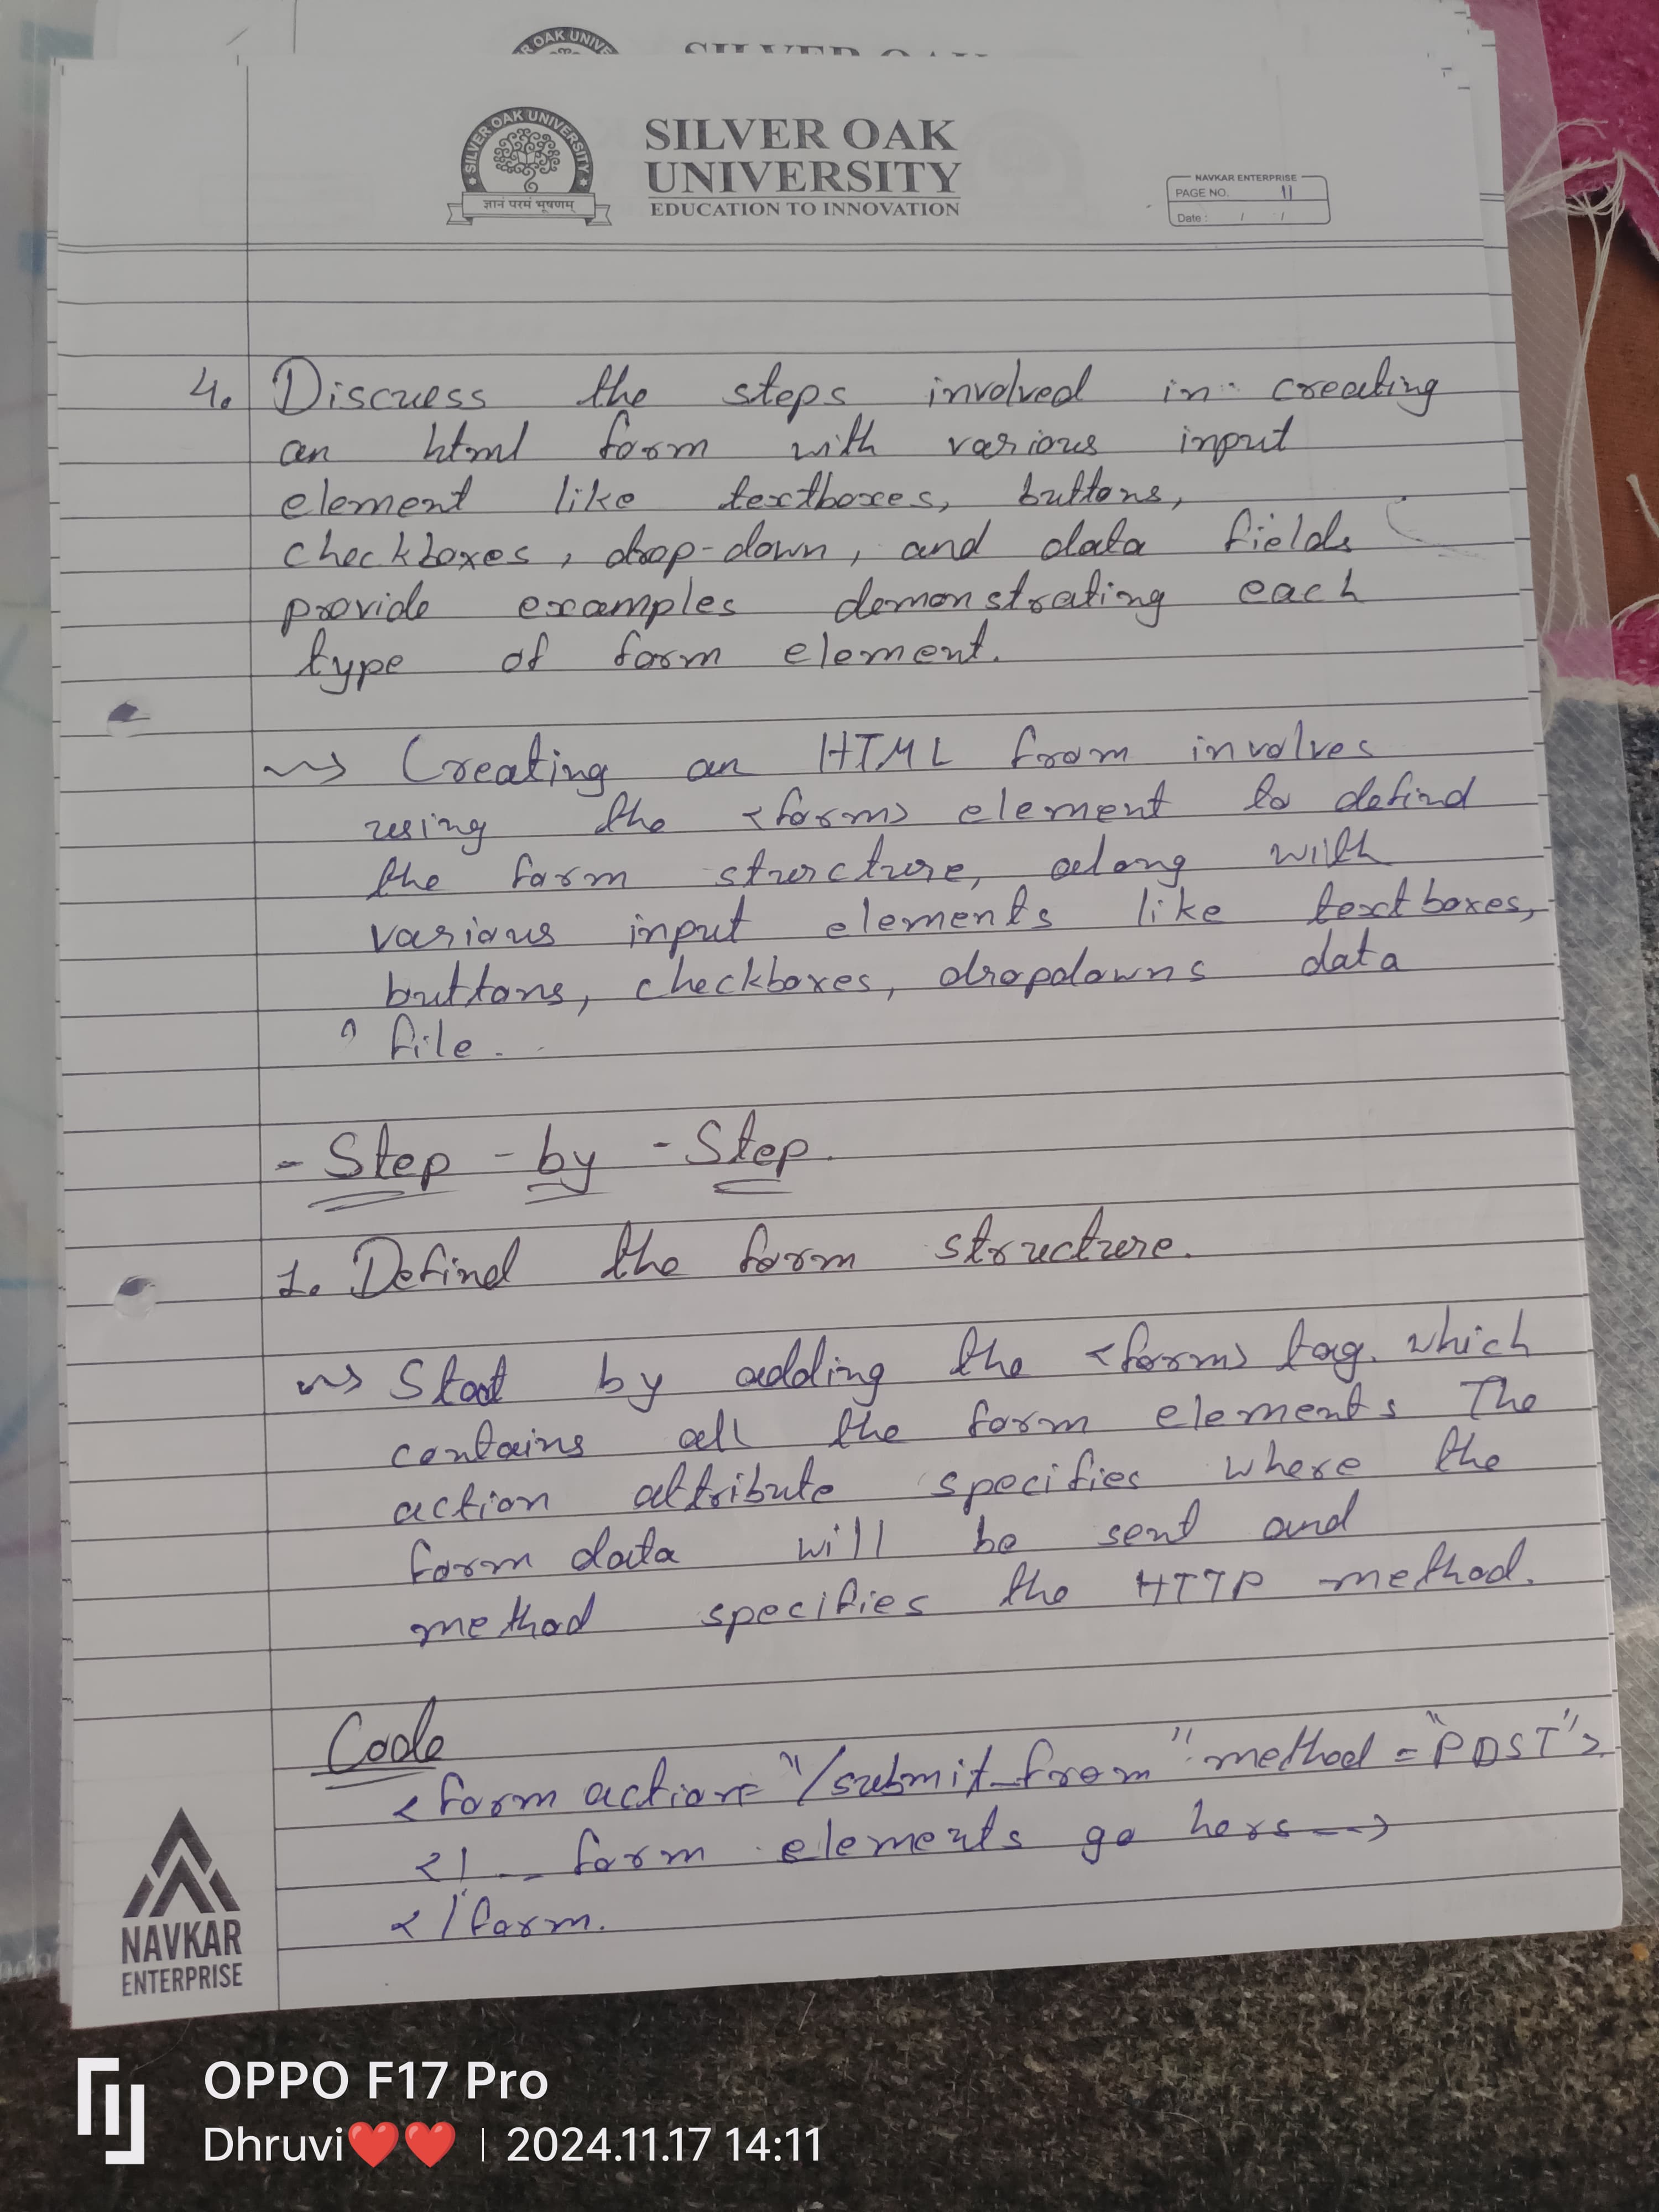 R OAK UNIVE
SILVER OAK
SILVER OAK UNIVERSITY
ज्ञानं परमं भूषणम्
SILVER OAK
UNIVERSITY
EDUCATION TO INNOVATION
NAVKAR ENTERPRISE
PAGE NO. 11
Date : / /
4. Discuss the steps involved in creating
an html form with various input
element like textboxes, buttons,
checkboxes, drop-down, and data fields
provide examples demonstrating each
type of form element.
Creating an HTML from involves
using the <form> element to defind
the form sturcture, along with
various input elements like textboxes,
buttons, checkboxes, dropdowns data
file.
- Step - by - Step.
1. Defind the form structure.
Start by adding the <form> tag. which
contains all the form elements The
action attribute specifies where the
form data will be sent and
method specifies the HTTP method.
Code
<form action= "/submit_from" method = "POST">
<! -- form elements go hers -->
</form.
NAVKAR
ENTERPRISE
OPPO F17 Pro
Dhruvi❤️❤️ | 2024.11.17 14:11